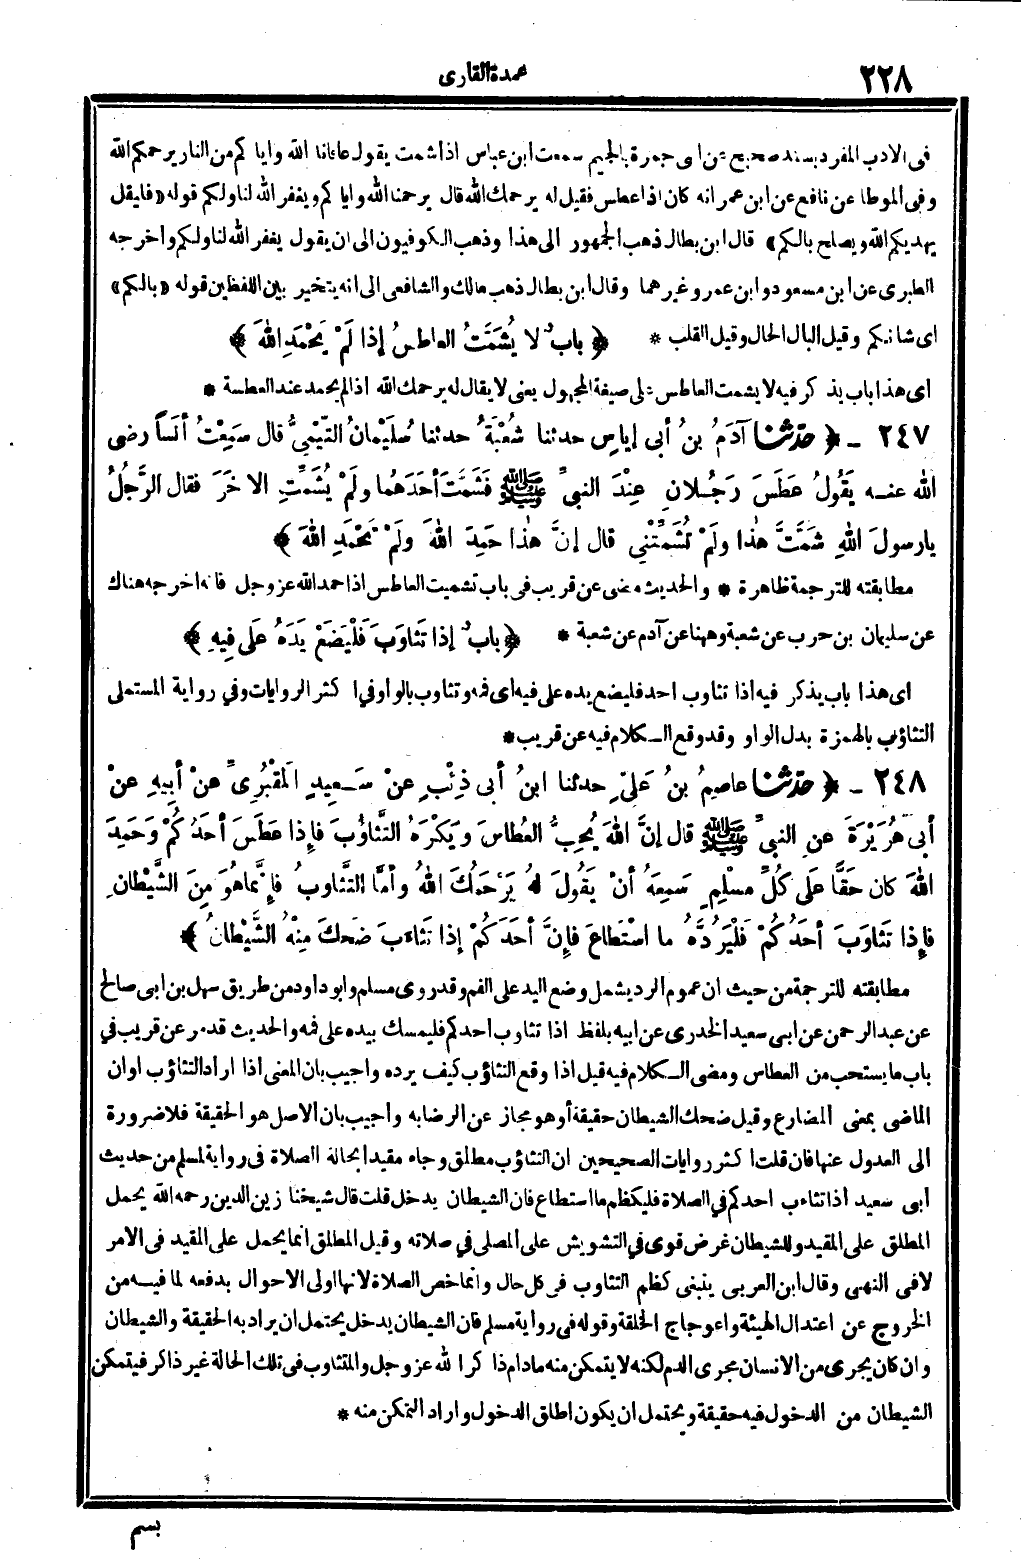 ٢٢٨
عمدة القارى
فى الادب المفرد بسند صحيح عن ابى جمرة بالجيم سمعت ابن عباس اذا شمت يقول عافانا الله واياكم من النار يرحمكم الله
وفى الموطا عن نافع عن ابن عمر انه كان اذا عطس فقيل له يرحمك الله قال يرحمنا الله واياكم ويغفر الله لنا ولكم قوله «فليقل
يهديكم الله ويصلح بالكم» قال ابن بطال ذهب الجمهور الى هذا وذهب الكوفيون الى ان يقول يغفر الله لنا ولكم واخرجه
الطبرى عن ابن مسعود وابن عمر وغيرهما وقال ابن بطال ذهب مالك والشافعى الى انه يتخير بين اللفظين قوله «بالكم»
اى شانكم وقيل البال الحال وقيل القلب * ﴿ بابٌ لا يُشَمَّتُ العاطِسُ إذا لَمْ يَحْمَدِ اللهَ ﴾
اى هذا باب يذكر فيه لا يشمت العاطس على صيغة المجهول يعنى لا يقال له يرحمك الله اذا لم يحمد عند العطسة *
٢٤٧ - ﴿ حَدَّثَنَا آدَمُ بنُ أبى إياسٍ حدثنا شُعْبَةُ حدثنا سُلَيْمانُ التَّيْمِىُّ قال سَمِعْتُ أنَساً رضى
الله عنه يَقُولُ عَطَسَ رَجُلانِ عِنْدَ النبىِّ ﷺ فَشَمَّتَ أحَدَهُما ولَمْ يُشَمِّتِ الآخَرَ فقال الرَّجُلُ
يارسولَ اللهِ شَمَّتَّ هٰذا ولَمْ تُشَمِّتْنِى قال إنَّ هٰذا حَمِدَ اللهَ ولَمْ تَحْمَدِ اللهَ ﴾
مطابقته للترجمة ظاهرة * والحديث مضى عن قريب فى باب تشميت العاطس اذا حمد الله عز وجل فانه اخرجه هناك
عن سليمان بن حرب عن شعبة وههنا عن آدم عن شعبة * ﴿ بابٌ إذا تَثاوَبَ فَلْيَضَعْ يَدَهُ عَلى فِيهِ ﴾
اى هذا باب يذكر فيه اذا تثاوب احد فليضع يده على فيه اى فمه وتثاوب بالواو فى اكثر الروايات وفي رواية المستملى
التثاؤب بالهمزة بدل الواو وقد وقع الكلام فيه عن قريب *
٢٤٨ - ﴿ حَدَّثَنَا عاصِمُ بنُ عَلىٍّ حدثنا ابنُ أبى ذِئْبٍ عنْ سَعِيدٍ المَقْبُرِىِّ عنْ أبِيهِ عنْ
أبى هُرَيْرَةَ عنِ النبىِّ ﷺ قال إنَّ اللهَ يُحِبُّ العُطاسَ ويَكْرَهُ التَّثاؤُبَ فإذا عَطَسَ أحَدُكُمْ وَحَمِدَ
اللهَ كان حَقًّا عَلى كُلِّ مسْلِمٍ سَمِعَهُ أنْ يَقُولَ لهُ يَرْحَمُكَ اللهُ وأمَّا التَّثاوُبُ فإنَّما هُوَ مِنَ الشَّيْطانِ
فإذا تَثاوَبَ أحَدُكُمْ فَلْيَرُدَّهُ ما اسْتَطاعَ فإنَّ أحَدَكُمْ إذا تَثاءَبَ ضَحِكَ مِنْهُ الشَّيْطانُ ﴾
مطابقته للترجمة من حيث ان عموم الرد يشمل وضع اليد على الفم وقد روى مسلم وابو داود من طريق سهل بن ابى صالح
عن عبد الرحمن عن ابى سعيد الخدرى عن ابيه بلفظ اذا تثاوب احدكم فليمسك بيده على فمه والحديث قد مر عن قريب في
باب ما يستحب من العطاس ومضى الكلام فيه قيل اذا وقع التثاؤب كيف يرده واجيب بان المعنى اذا اراد التثاؤب او ان
الماضى بمعنى المضارع وقيل ضحك الشيطان حقيقة أو هو مجاز عن الرضا به واجيب بان الاصل هو الحقيقة فلا ضرورة
الى العدول عنها فان قلت اكثر روايات الصحيحين ان التثاؤب مطلق وجاء مقيدا بحالة الصلاة فى رواية لمسلم من حديث
ابى سعيد اذا تثاءب احدكم في الصلاة فليكظم ما استطاع فان الشيطان يدخل قلت قال شيخنا زين الدين رحمه الله يحمل
المطلق على المقيد وللشيطان غرض قوى في التشويش على المصلى في صلاته وقيل المطلق انما يحمل على المقيد فى الامر
لا فى النهى وقال ابن العربى ينبغى كظم التثاوب فى كل حال وانما خص الصلاة لانها اولى الاحوال بدفعه لما فيه من
الخروج عن اعتدال الهيئة واعوجاج الخلقة وقوله فى رواية مسلم فان الشيطان يدخل يحتمل ان يراد به الحقيقة والشيطان
وان كان يجرى من الانسان مجرى الدم لكنه لا يتمكن منه مادام ذاكرا لله عز وجل والمتثاوب فى تلك الحالة غير ذاكر فيتمكن
الشيطان من الدخول فيه حقيقة ويحتمل ان يكون اطلق الدخول واراد التمكن منه *
بسم